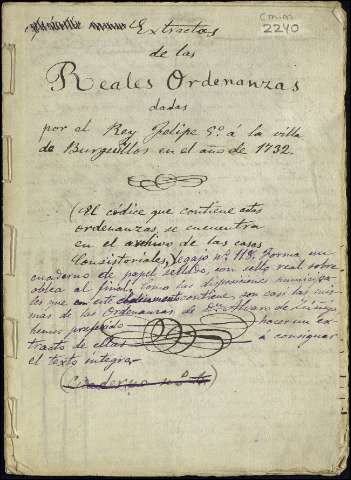 Extractos
Com.ón
2240
de las
Reales Ordenanzas
dadas
por el Rey Felipe 5º á la villa
de Burguillos en el año de 1732.
(El códice que contiene estas
ordenanzas, se encuentra
en el archivo de las casas
Consistoriales, legajo nº 118. Forma un
cuaderno de papel sellado, con sello real sobre
oblea al final. Como las disposiciones municipa
les que en este documento contiene, son casi las mis-
mas de las Ordenanzas de Dn Alvaro de Zúñiga
hemos preferido hacer un ex-
tracto de ellas á consignar
el texto íntegro.
(Cuaderno nº